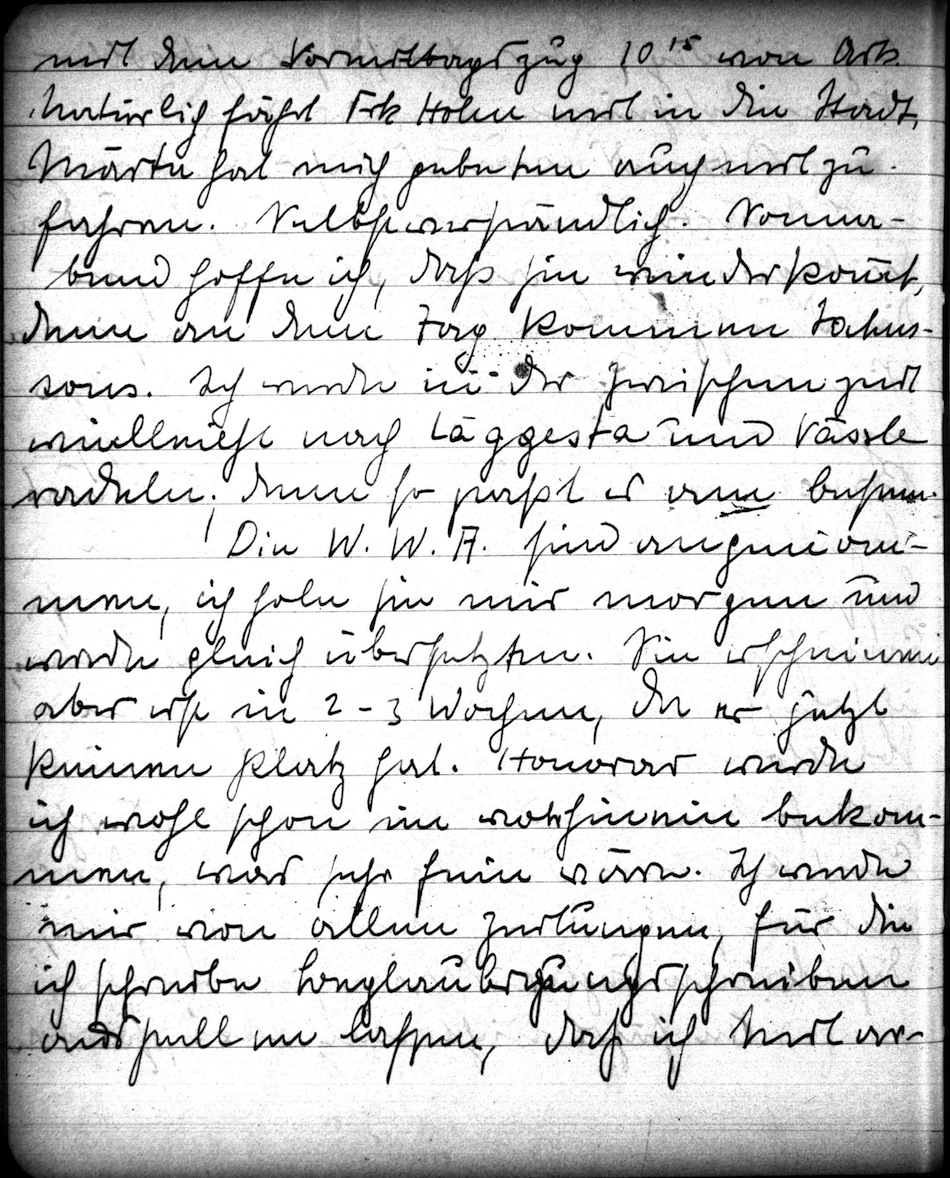 mit dem Vormittagszug 10¹⁵ von Ark.
Natürlich fährt Frk Holm mit in die Stadt,
Märta hat mich gebeten auch mitzu-
fahren. Selbstverständlich. Sonna-
bend hoffe ich, daß sie wiederkommt,
denn an dem Tag kommen Johns-
sons. Ich werde in der Zwischenzeit
vielleicht nach Läggesta und
radeln, denn so paßt es am besten.
Die W. W. A. sind angenom-
men, ich hole sie mir morgen und
werde gleich übersetzten. Sie erscheinen
aber erst in 2-3 Wochen, da er jetzt
keinen Platz hat. Honorar werde
ich wohl schon im vorhinein bekom-
men, was sehr fein wäre. Ich werde
mir von allen Zeitungen, für die
ich schreibe Beglaubigungsschreiben
ausstellen lassen, daß ich Mitar-